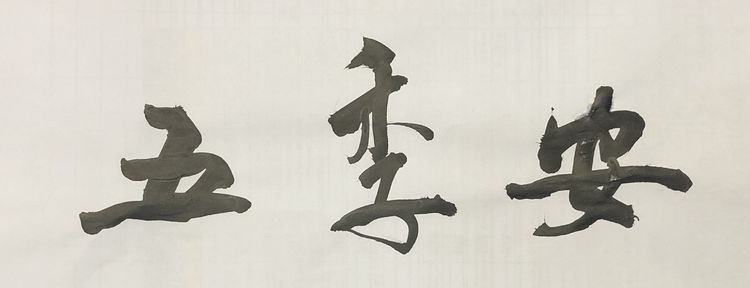 五季安